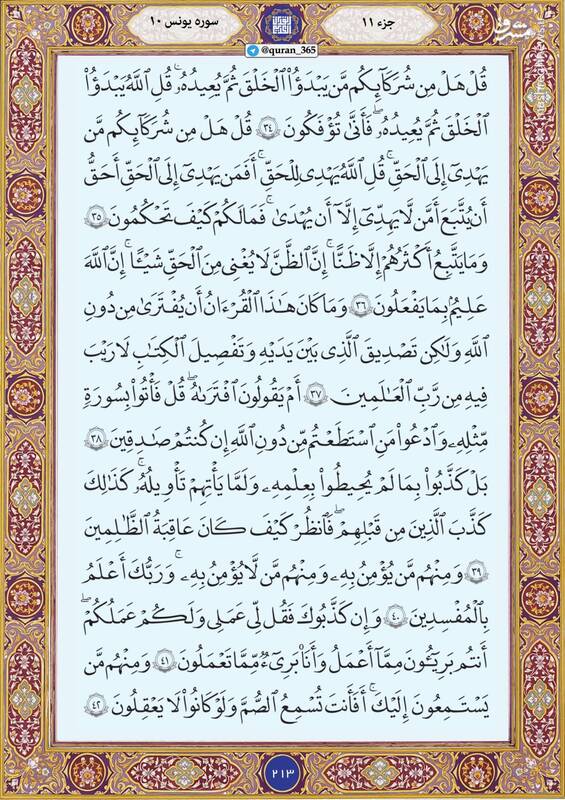 جزء ۱۱
سوره یونس ۱۰
@quran_365
قُلْ هَلْ مِن شُرَكَآئِكُم مَّن يَبْدَؤُا۟ ٱلْخَلْقَ ثُمَّ يُعِيدُهُۥ ۚ قُلِ ٱللَّهُ يَبْدَؤُا۟
ٱلْخَلْقَ ثُمَّ يُعِيدُهُۥ ۖ فَأَنَّىٰ تُؤْفَكُونَ ۳۴ قُلْ هَلْ مِن شُرَكَآئِكُم مَّن
يَهْدِىٓ إِلَى ٱلْحَقِّ ۚ قُلِ ٱللَّهُ يَهْدِى لِلْحَقِّ ۗ أَفَمَن يَهْدِىٓ إِلَى ٱلْحَقِّ أَحَقُّ
أَن يُتَّبَعَ أَمَّن لَّا يَهِدِّىٓ إِلَّآ أَن يُهْدَىٰ ۖ فَمَا لَكُمْ كَيْفَ تَحْكُمُونَ ۳۵
وَمَا يَتَّبِعُ أَكْثَرُهُمْ إِلَّا ظَنًّا ۚ إِنَّ ٱلظَّنَّ لَا يُغْنِى مِنَ ٱلْحَقِّ شَيْـًٔا ۚ إِنَّ ٱللَّهَ
عَلِيمٌۢ بِمَا يَفْعَلُونَ ۳۶ وَمَا كَانَ هَٰذَا ٱلْقُرْءَانُ أَن يُفْتَرَىٰ مِن دُونِ
ٱللَّهِ وَلَٰكِن تَصْدِيقَ ٱلَّذِى بَيْنَ يَدَيْهِ وَتَفْصِيلَ ٱلْكِتَٰبِ لَا رَيْبَ
فِيهِ مِن رَّبِّ ٱلْعَٰلَمِينَ ۳۷ أَمْ يَقُولُونَ ٱفْتَرَىٰهُ ۖ قُلْ فَأْتُوا۟ بِسُورَةٍ
مِّثْلِهِۦ وَٱدْعُوا۟ مَنِ ٱسْتَطَعْتُم مِّن دُونِ ٱللَّهِ إِن كُنتُمْ صَٰدِقِينَ ۳۸
بَلْ كَذَّبُوا۟ بِمَا لَمْ يُحِيطُوا۟ بِعِلْمِهِۦ وَلَمَّا يَأْتِهِمْ تَأْوِيلُهُۥ ۚ كَذَٰلِكَ
كَذَّبَ ٱلَّذِينَ مِن قَبْلِهِمْ ۖ فَٱنظُرْ كَيْفَ كَانَ عَٰقِبَةُ ٱلظَّٰلِمِينَ
۳۹ وَمِنْهُم مَّن يُؤْمِنُ بِهِۦ وَمِنْهُم مَّن لَّا يُؤْمِنُ بِهِۦ ۚ وَرَبُّكَ أَعْلَمُ
بِٱلْمُفْسِدِينَ ۴۰ وَإِن كَذَّبُوكَ فَقُل لِّى عَمَلِى وَلَكُمْ عَمَلُكُمْ ۖ
أَنتُم بَرِيٓـُٔونَ مِمَّآ أَعْمَلُ وَأَنَا۠ بَرِىٓءٌ مِّمَّا تَعْمَلُونَ ۴۱ وَمِنْهُم مَّن
يَسْتَمِعُونَ إِلَيْكَ ۚ أَفَأَنتَ تُسْمِعُ ٱلصُّمَّ وَلَوْ كَانُوا۟ لَا يَعْقِلُونَ ۴۲
۲۱۳